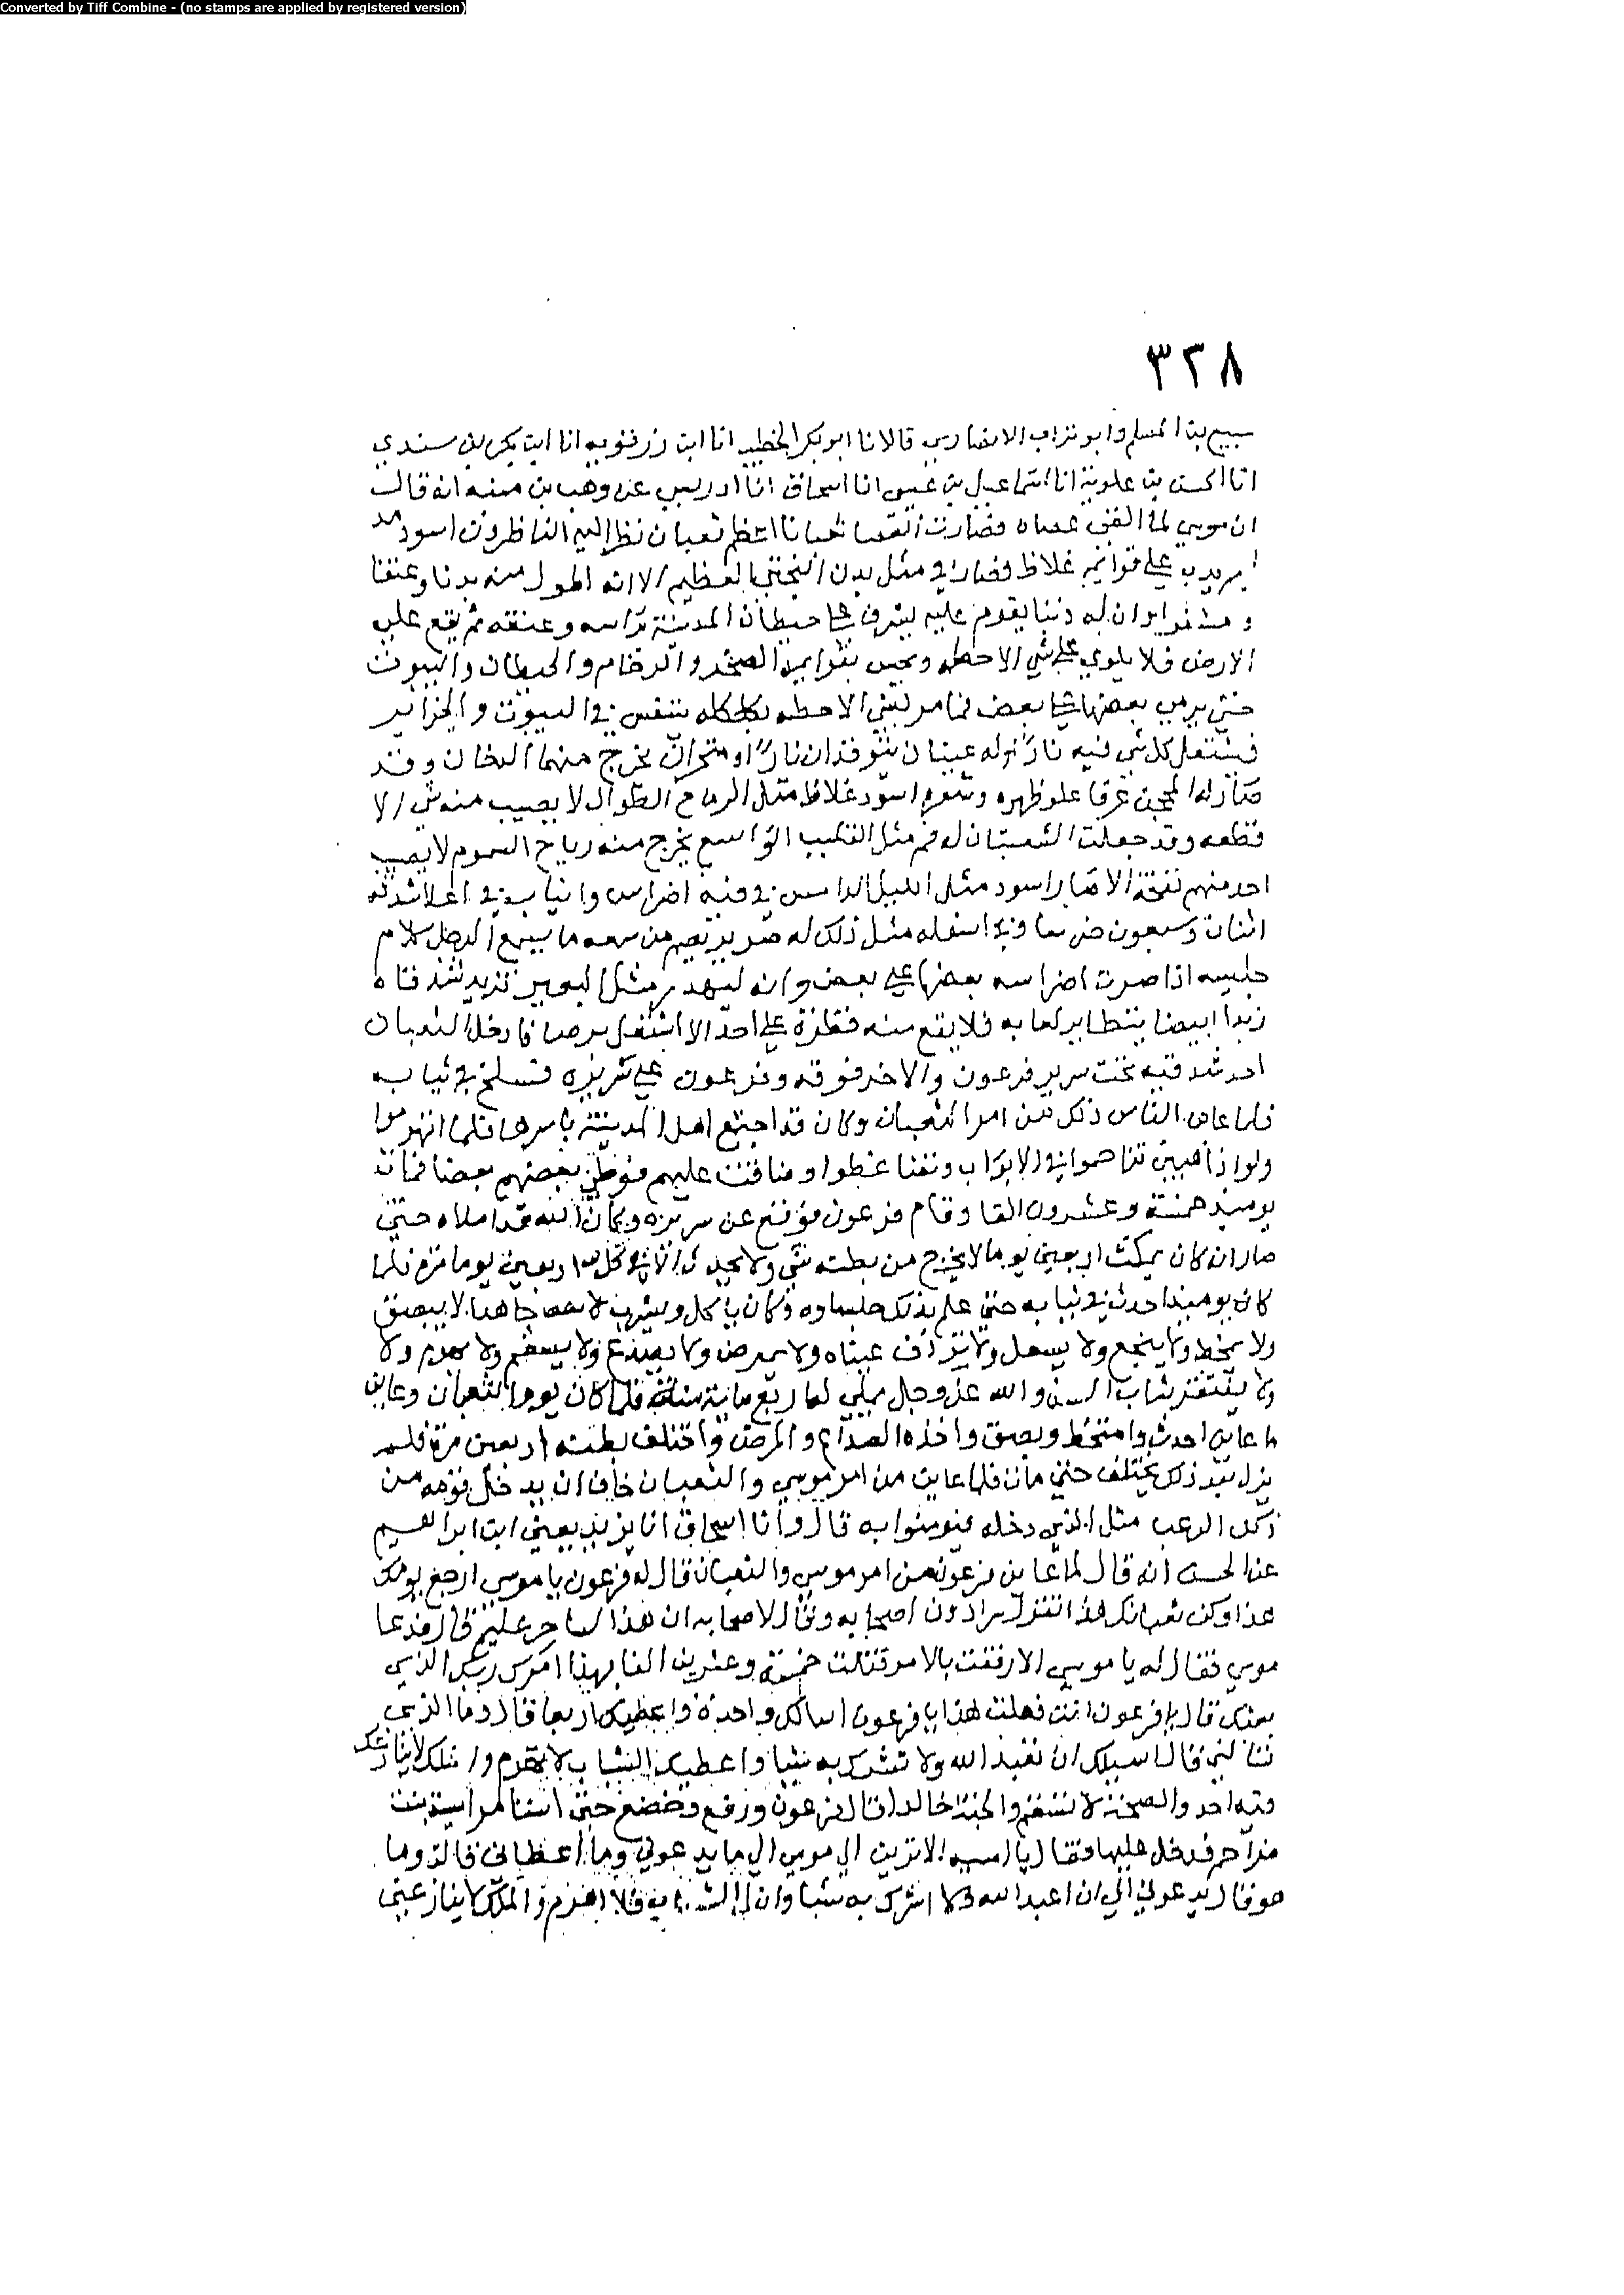 Converted by Tiff Combine - (no stamps are applied by registered version)
٣٢٨
سبيع بن المسلم وابو تراب الانصاري قالا نا ابو بكر الخطيب انا ابن رزقويه انا ابن بكر بن سندي
انا الحسن بن علوية انا اسماعيل بن عيسى انا اسحاق انا ادريس عن وهب بن منبه انه قال
ان موسي لما القى عصاه فصارت العصا ثعبانا اعظم ثعبان نظر اليه الناظرون اسود
يدب علي قوايم غلاظ فصار في مثل بدن البختي العظيم الا انه اطول منه بدنا وعنقا
ومشفرا وان له ذنبا يقوم عليه ليشرف علي حيطان المدينة براسه وعنقه ثم يقع علي
الارض فلا يلوي علي شي الا حطمه ويحبس بقوايمه الصخر والرخام والحيطان والبيوت
حتي يرمي بعضها علي بعض فما مر بشي الا حطمه بكلكله يتنفس في البيوت والخزاير
فيشتعل كل شي فيه نارا وله عينان تتوقدان نارا ومنخران يخرج منهما الدخان وقد
صار له المحجن عرفا علي ظهره وشعره اسود غلاظ مثل الرماح الطوال لا يصيب منه شي الا
قطعه وقد جعلت الشعبتان له فم مثل القليب الواسع يخرج منه رياح السموم لا يصيب
احد منهم نفحة الا صار اسود مثل الليل الدامس في فيه اضراس وانياب في اعلا شدقه
اثنان وسبعون ضرسا وفي اسفله مثل ذلك له صرير يصم من سمعه ما يسمع الرجل كلام
جليسه اذا صرت اضراسه بعضها علي بعض وانه ليهدر مثل البعير تزبد شدقاه
زبدا ابيضا يتطاير لعابه فلا يقع منه قطرة علي احد الا اشتعل برصا فادخل الثعبان
احد شدقيه تحت سرير فرعون والاخر فوقه وفرعون علي سريره فسلح في ثيابه
فلما عاين الناس ذلك من امر الثعبان وكان قد اجتمع اهل المدينة باسرها فلما انهزموا
ولوا ذاهبين تزاحموا في الابواب وتضاغطوا وضاقت عليهم فوطئ بعضهم بعضا فمات
يوميذ خمسة وعشرون الفا وقام فرعون فوقع عن سريره وكان الله قد املاه حتي
صار ان كان يمكث اربعين يوما لا يخرج من بطنه شي ولا يحدث الا في كل اربعين يوما مرة فلما
كان يوميذ احدث في ثيابه حتي علم بذلك جلساوه وكان ياكل ويشرب جاهدا لا يبصق
ولا يمخط ولا يتنخع ولا يسعل ولا تذرف عيناه ولا يمرض ولا يصدع ولا يسقم ولا يهرم ولا
ولا يفتقر شاب السن والله عز وجل يملي له اربع ماية سنة فلما كان يوم الثعبان وعاين
ما عاين احدث وامتخط وبصق واخذه الصداع والمرض واختلف بطنه اربعين مرة فلم
يزل بعد ذلك يختلف حتي مات فلما عاين من امر موسي والثعبان خاف ان يدخل قومه من
ذلك الرعب مثل الذي دخله فيومنوا به قال وانا اسحاق انا يزيد يعني ابن ابراهيم
عن الحسن انه قال لما عاين فرعون من امر موسي والثعبان قال له فرعون يا موسي ارجع يومك
هذا وكف ثعبانك هذا سرا دون اصحابه وقال لاصحابه ان هذا لساحر عليم قال فدعا
موسي فقال له يا موسي الا رفقت بالامر قتلت خمسة وعشرين الفا بهذا امرك ربك الذي
بعثك قال يا فرعون انت فعلت هذا يا فرعون اسالك واحدة واعطيك اربعا قال وما الذي
تسالني قال اسيلك ان تعبد الله ولا تشرك به شيا واعطيك الشباب لا تهرم والملك لا ينازعك
فيه احد والصحة لا تسقم والجنة خالدا قال فرعون ورفع وخضع حتي استامر اسية بنت
مزاحم فدخل عليها فقال يا اسية الا ترين الي موسي الي ما يدعوني وما اعطاني قالت وما
هو قال يدعوني الي ان اعبد الله ولا اشرك به شيا وان لي الشباب فلا اهرم والملك لا ينازعني